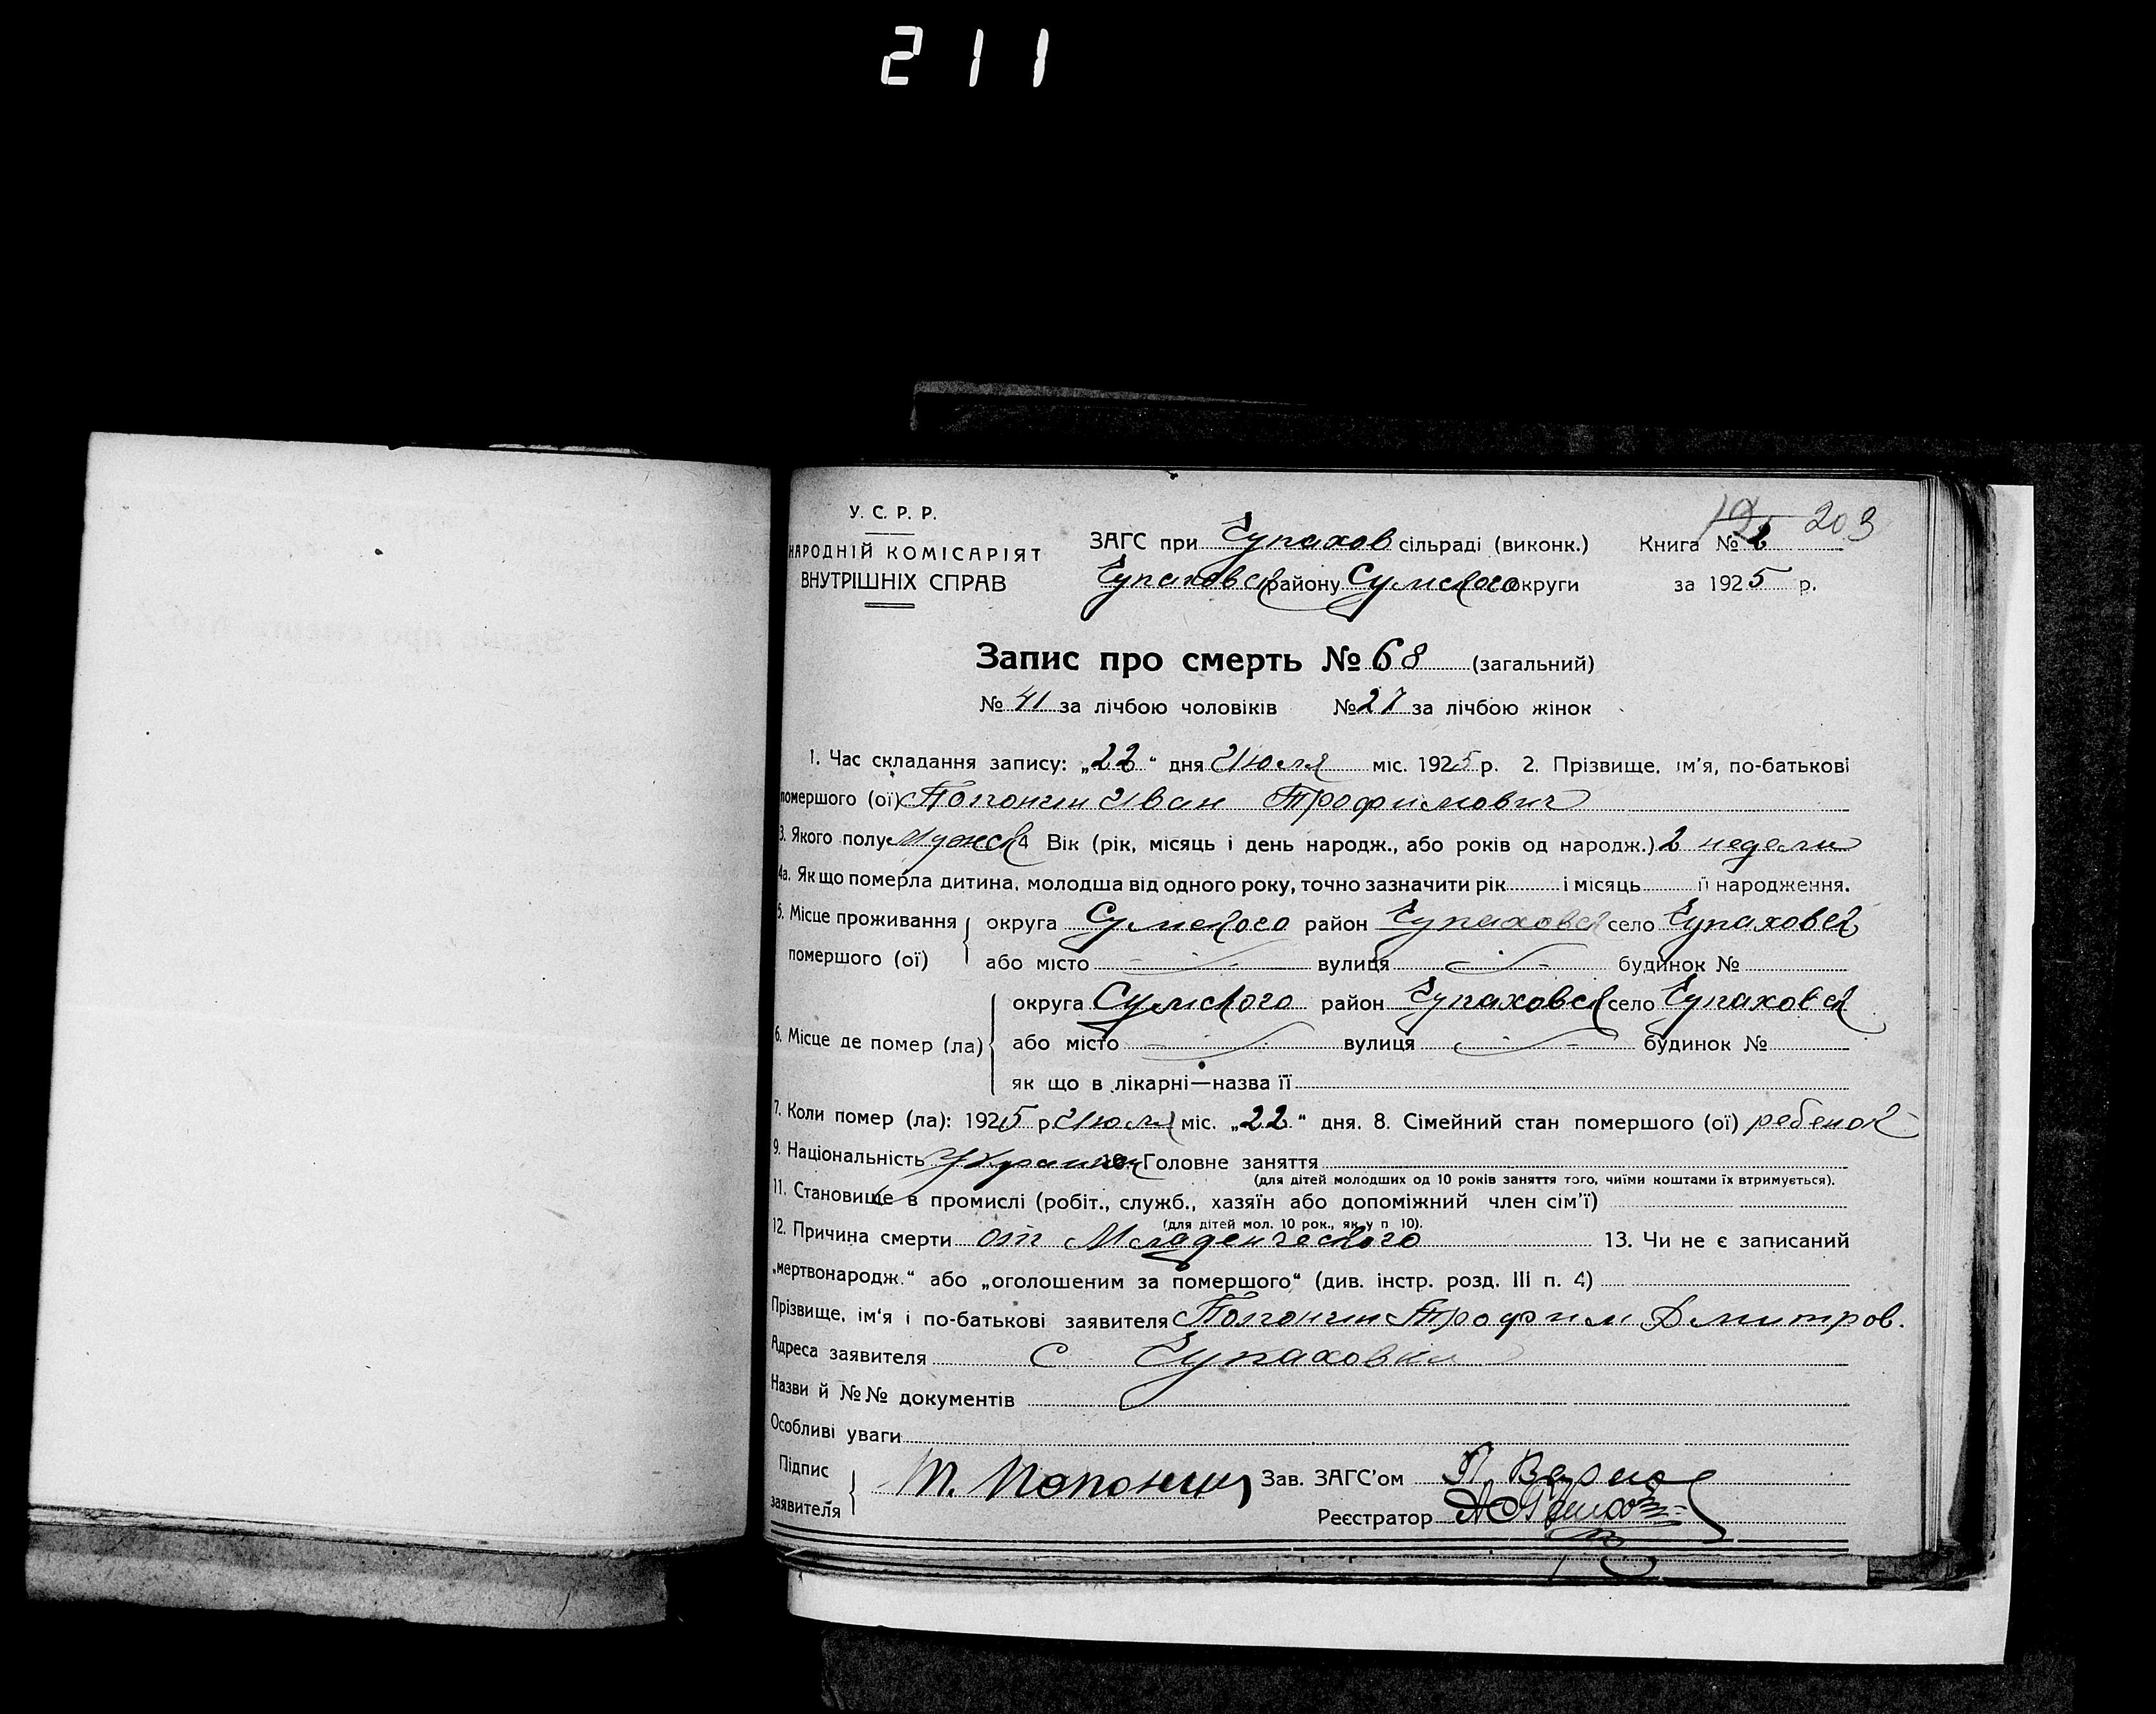 211
У. С. Р. Р.
НАРОДНІЙ КОМІСАРІЯТ
ВНУТРІШНІХ СПРАВ
203
ЗАГС при Чупахов сільраді (виконк.) Книга № 2
Чупаховск району Сумского округи за 1925 р.
Запис про смерть № 68 (загальний)
№ 41 за лічбою чоловіків № 27 за лічбою жінок
1. Час складання запису: „22“ дня Июля міс. 1925 р. 2. Прізвище, ім'я, по-батькові
помершого (ої) Иван Трофимович
3. Якого полу мужск 4 Вік (рік, місяць і день народж., або років од народж.) 2 недели
4а. Як що померла дитина, молодша від одного року, точно зазначити рік і місяць її народження.
5. Місце проживання помершого (ої) округа Сумского район Чупаховск село Чупаховк
або місто вулиця будинок №
6. Місце де помер (ла) округа Сумского район Чупаховск село Чупаховк
або місто вулиця будинок №
як що в лікарні—назва її
7. Коли помер (ла): 1925 р Июля міс. „22“ дня. 8. Сімейний стан помершого (ої) ребенок
9. Національність 10. Головне заняття
(для дітей молодших од 10 років заняття того, чиїми коштами їх втримується).
11. Становище в промислі (робіт., служб., хазяїн або допоміжний член сім'ї)
(для дітей мол. 10 рок., як у п 10).
12. Причина смерти от Младенческого 13. Чи не є записаний
„мертвонародж.“ або „оголошеним за помершого“ (див. інстр. розд. III п. 4)
Прізвище, ім'я і по-батькові заявителя Трофим Дмитров.
Адреса заявителя с Чупаховка
Назви й №№ документів
Особливі уваги
Підпис заявителя Т. Зав. ЗАГС'ом П.
Реєстратор